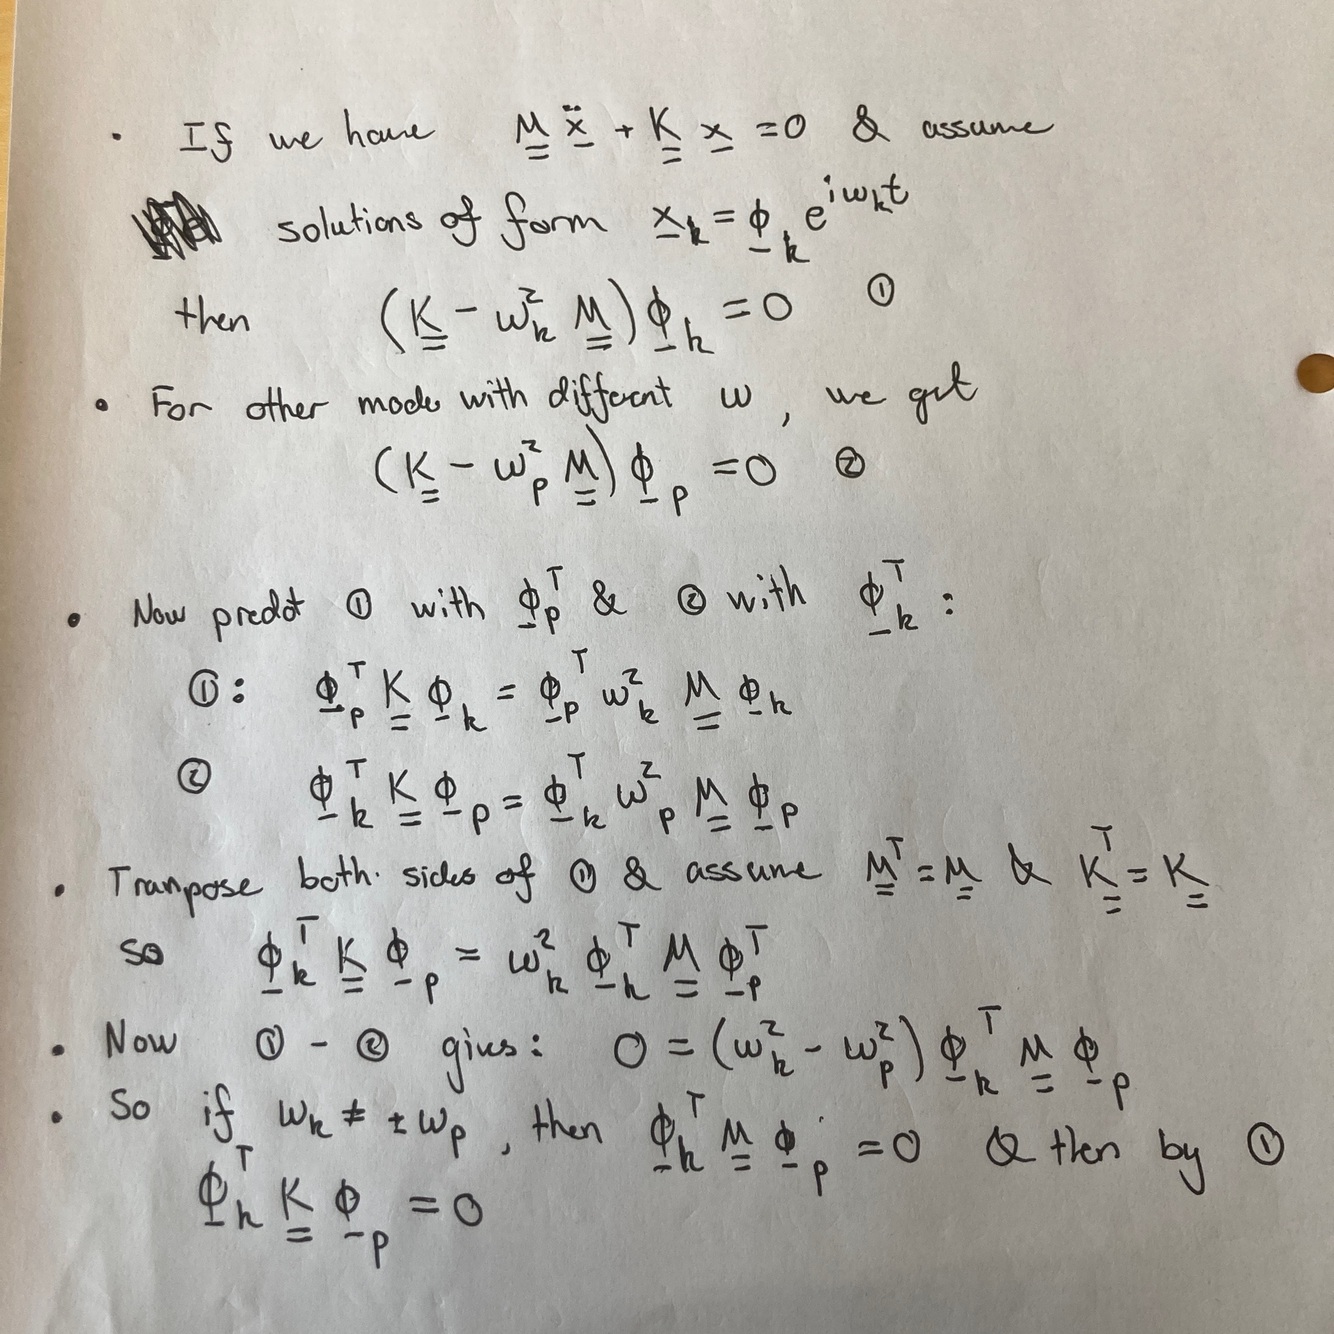 • If we have M ẍ + K x = 0 & assume
solutions of form x_k = ϕ_k e^{iω_k t}
then (K - ω_k^2 M) ϕ_k = 0 ①
• For other mode with different ω, we get
(K - ω_p^2 M) ϕ_p = 0 ②
• Now predot ① with ϕ_p^T & ② with ϕ_k^T :
①: ϕ_p^T K ϕ_k = ϕ_p^T ω_k^2 M ϕ_k
② ϕ_k^T K ϕ_p = ϕ_k^T ω_p^2 M ϕ_p
• Tranpose both sides of ① & assume M^T = M & K^T = K
so ϕ_k^T K ϕ_p = ω_k^2 ϕ_k^T M ϕ_p^T
• Now ① - ② gives: 0 = (ω_k^2 - ω_p^2) ϕ_k^T M ϕ_p
• So if ω_k ≠ ± ω_p, then ϕ_k^T M ϕ_p = 0 & then by ①
ϕ_k^T K ϕ_p = 0